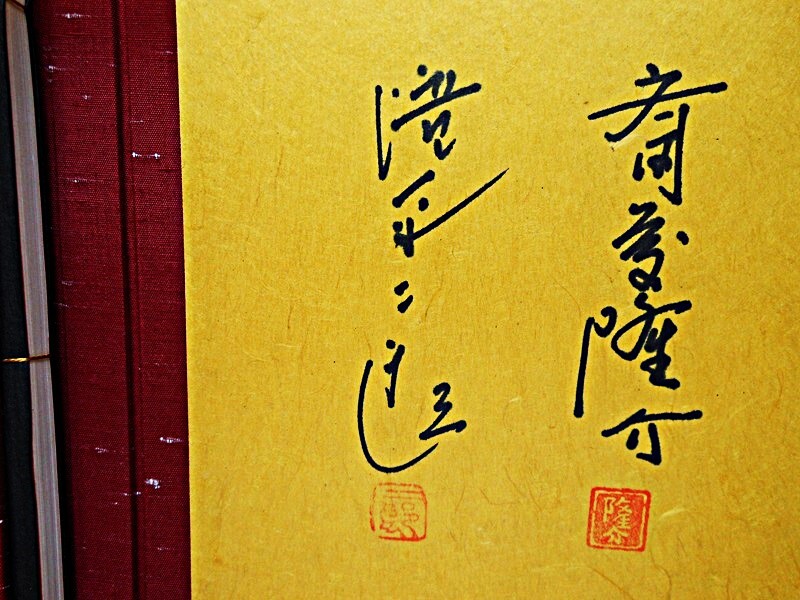 斎藤隆介
隆介
滝平二郎